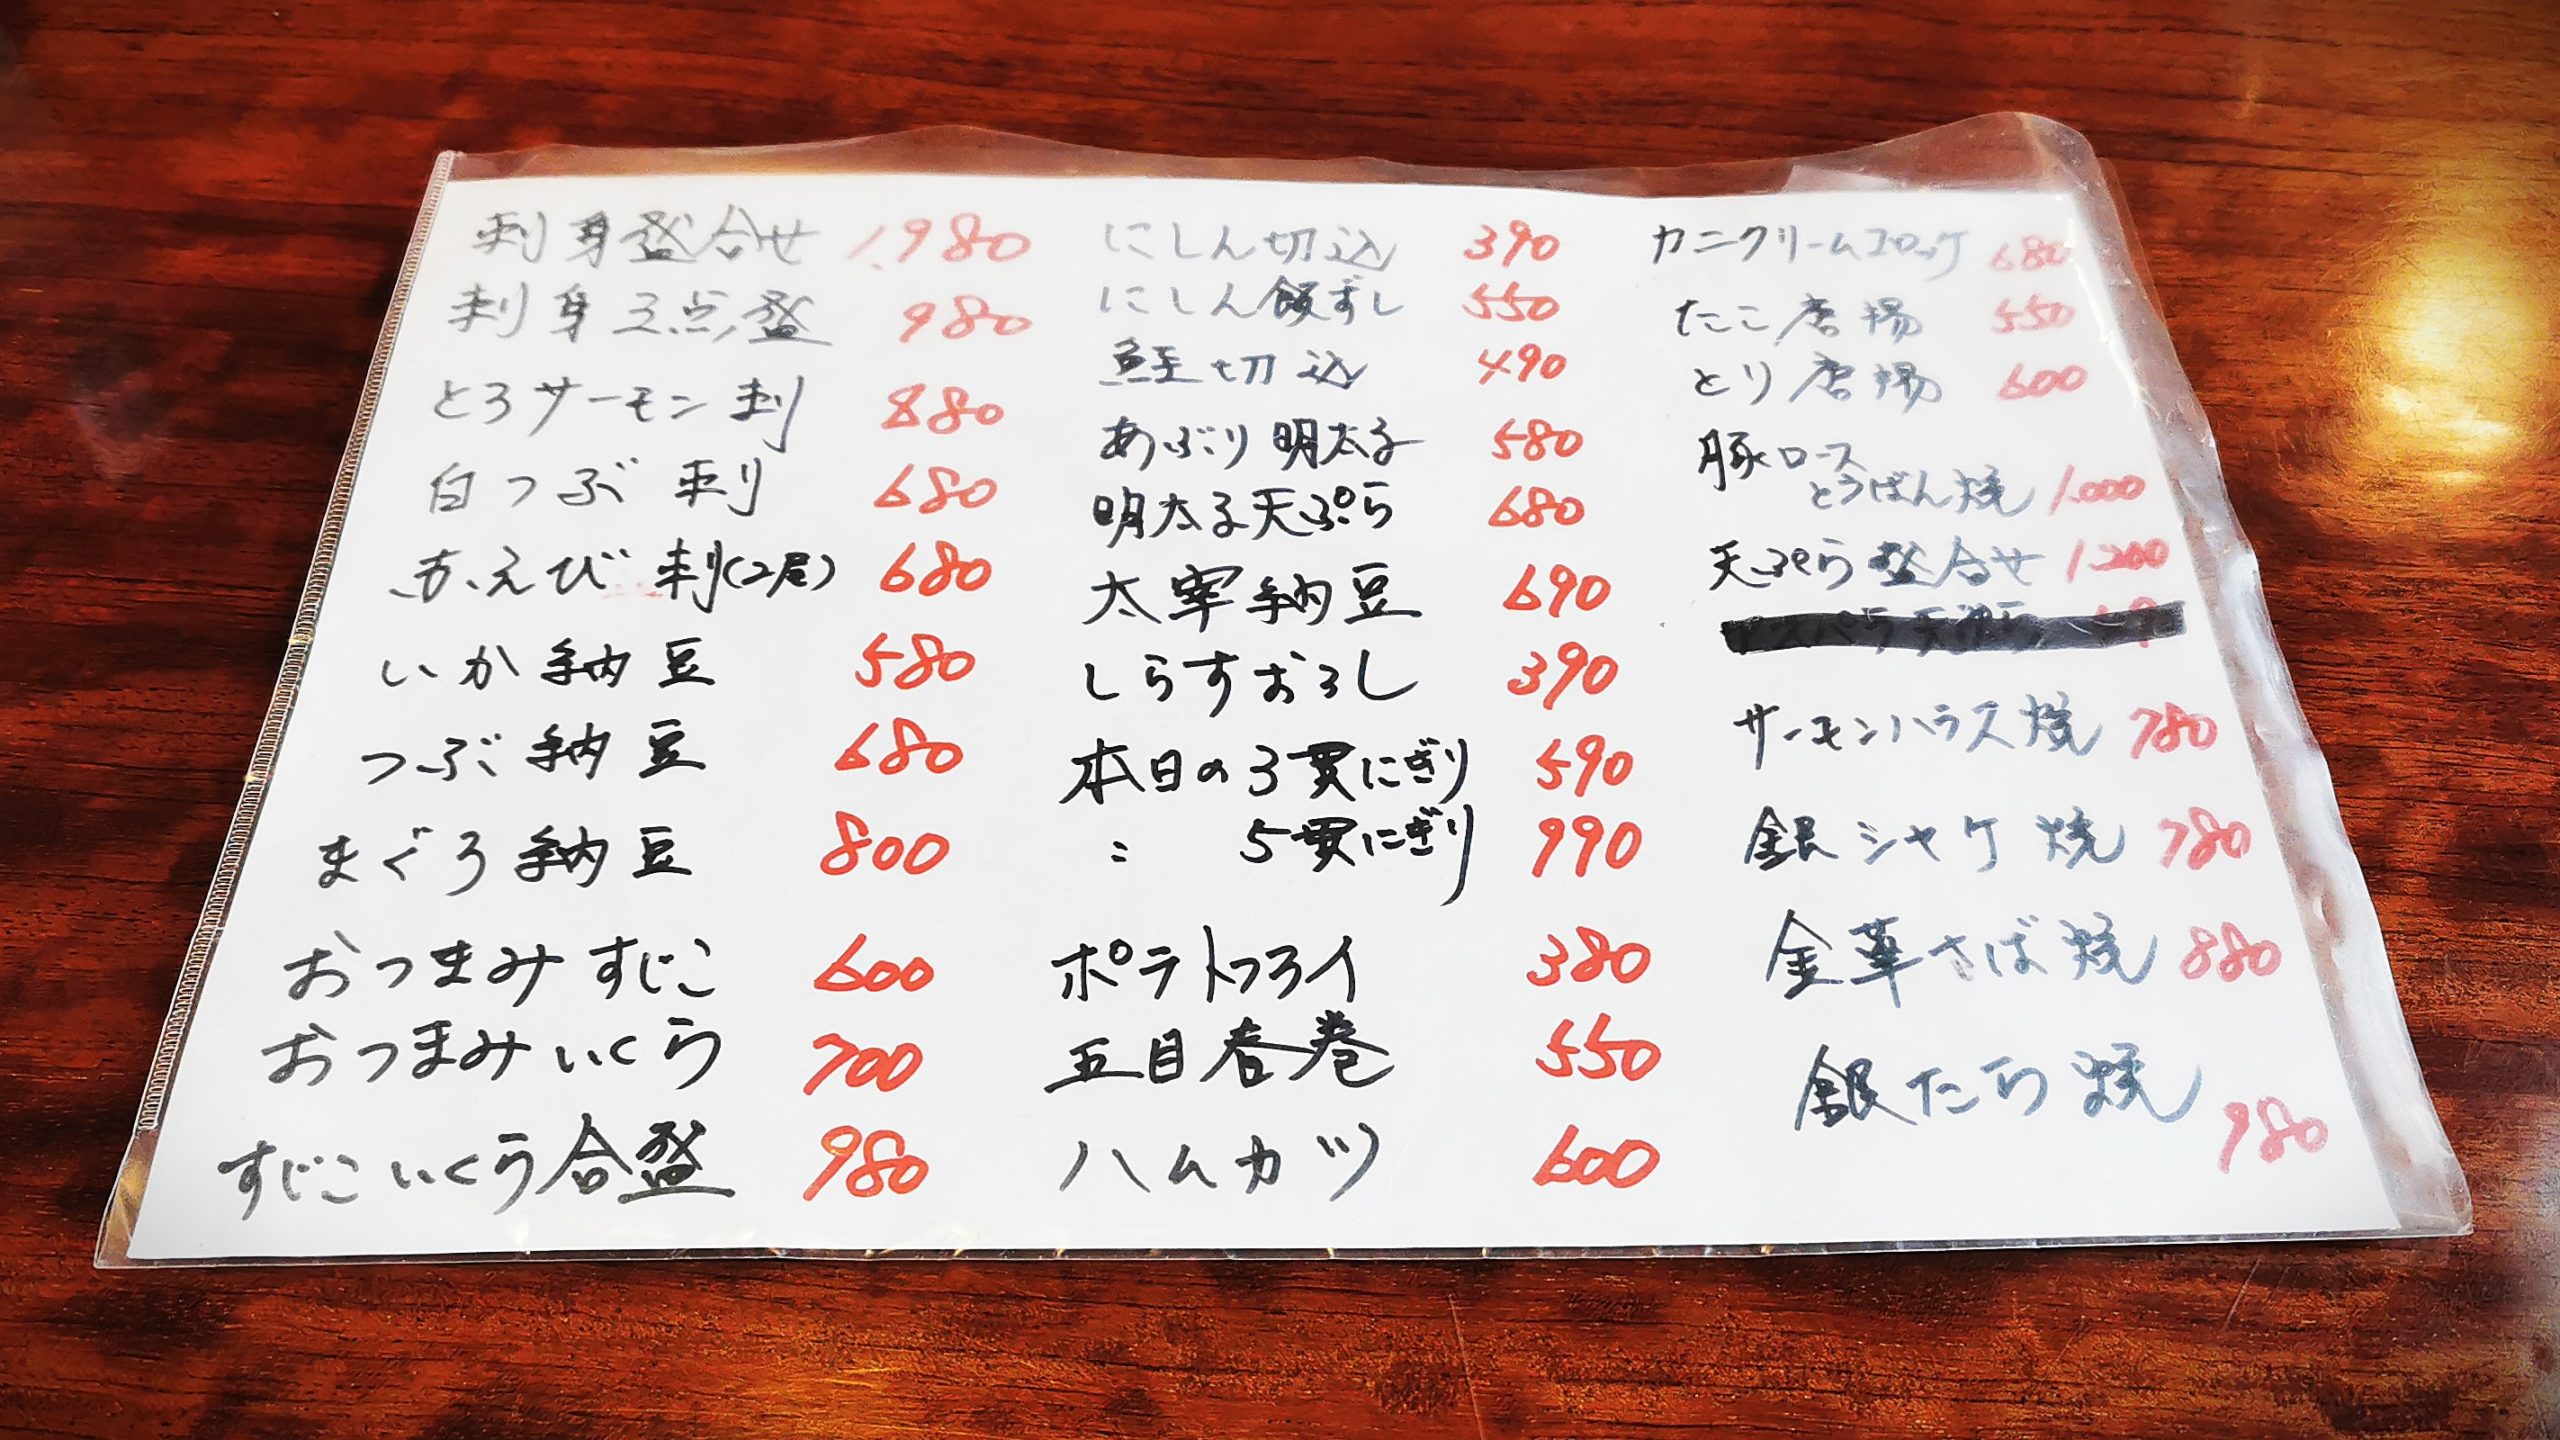 刺身盛合せ 1,980
刺身三点盛 980
とろサーモン刺 880
白つぶ刺 680
赤えび刺(2尾) 680
いか納豆 580
つぶ納豆 680
まぐろ納豆 800
おつまみすじこ 600
おつまみいくら 700
すじこいくら合盛 980
にしん切込 390
にしん飯ずし 550
鮭切込 490
あぶり明太子 580
明太子天ぷら 680
太宰納豆 690
しらすおろし 390
本日の3貫にぎり 590
〃 5貫にぎり 990
ポテトフライ 380
五目春巻 550
ハムカツ 600
カニクリームコロッケ 680
たこ唐揚 550
とり唐揚 600
豚ロース
とうばん焼 1.000
天ぷら盛合せ 1.200
サーモンハラス焼 780
銀シャケ焼 780
金華さば焼 880
銀たら焼 980